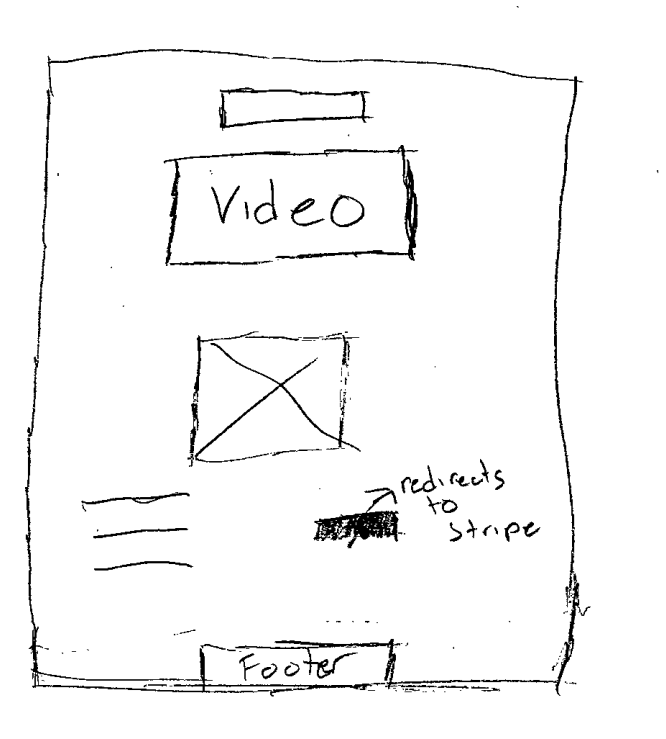 Video
redirects
to
stripe
Footer